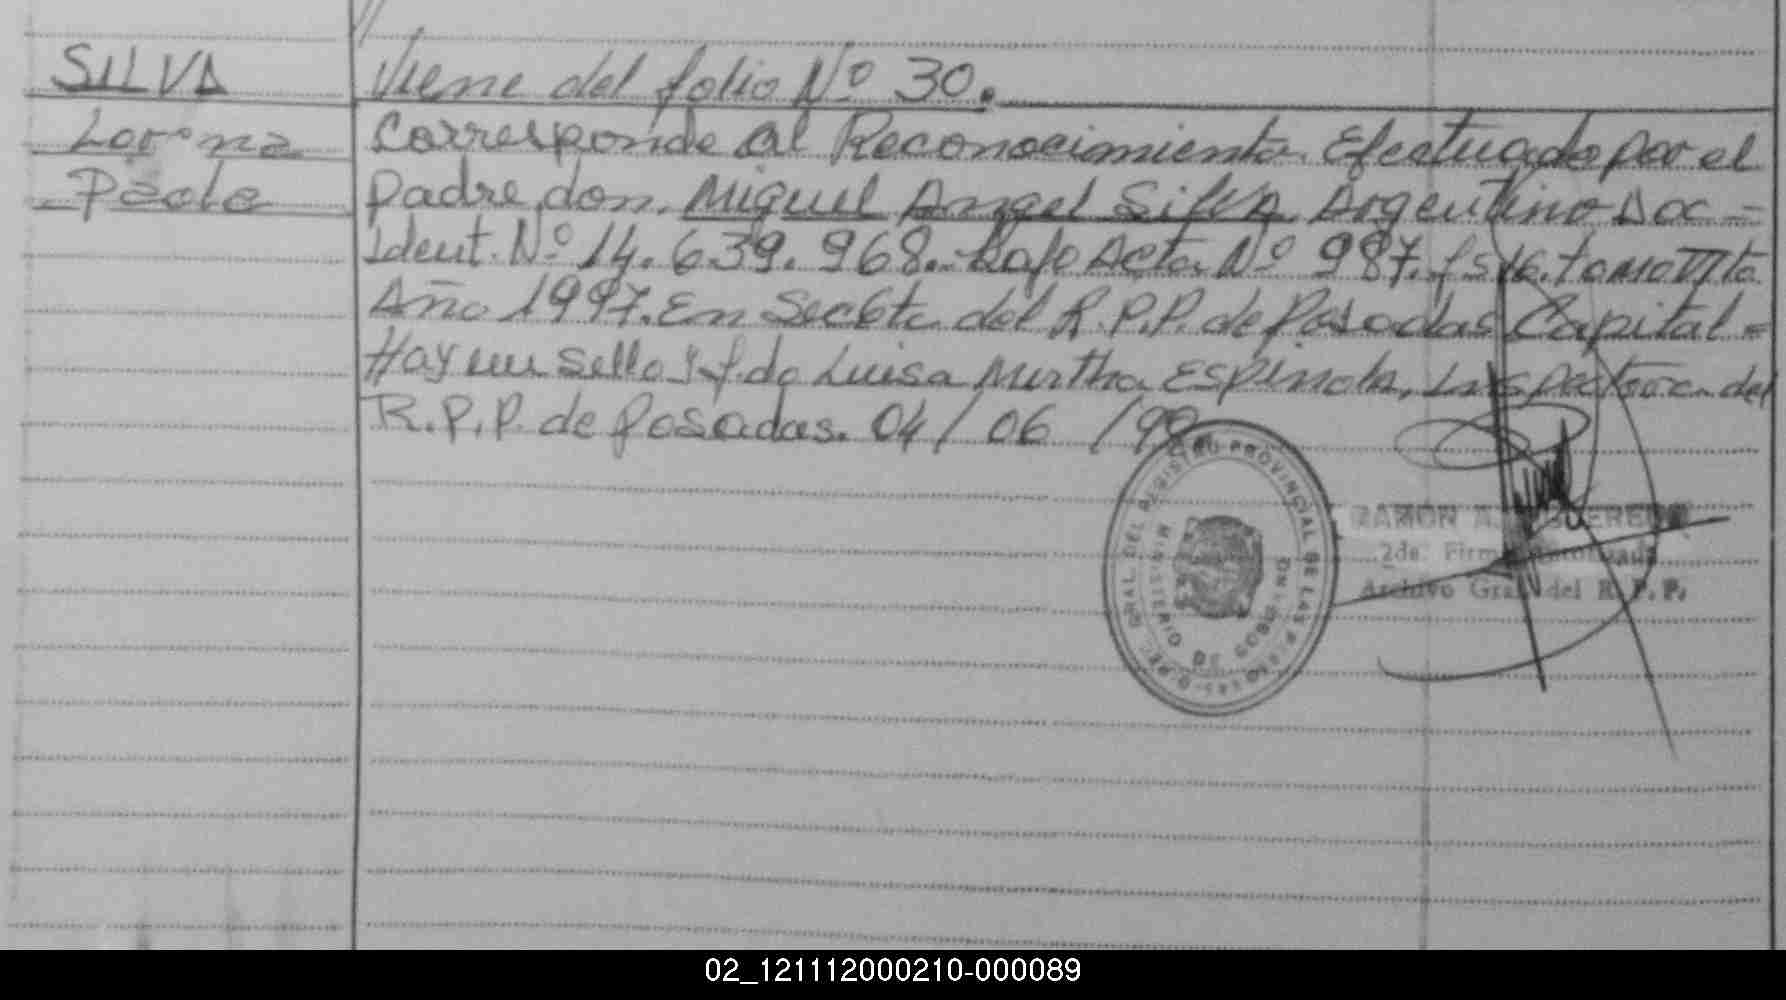 SILVA
Lorena
Paola
Viene del folio Nº 30.
Corresponde al Reconocimiento Efectuado por el
padre don. Miguel Angel Silva Argentino Doc =
Ident. Nº 14.639.968.- Bajo Acta Nº 987. fs 16. tomo
Año 1997. En Secc 6ta del R.P.P. de Posadas Capital =
Hay un sello y f.do Luisa Mirtha Espinola, Inspectora del
R.P.P. de Posadas. 04/06/98
REGISTRO PROVINCIAL DE LAS PERSONAS
MINISTERIO DE GOBIERNO
RAMON A.
2da. Firma Autorizada
Archivo Gral. del R.P.P.
02_121112000210-000089